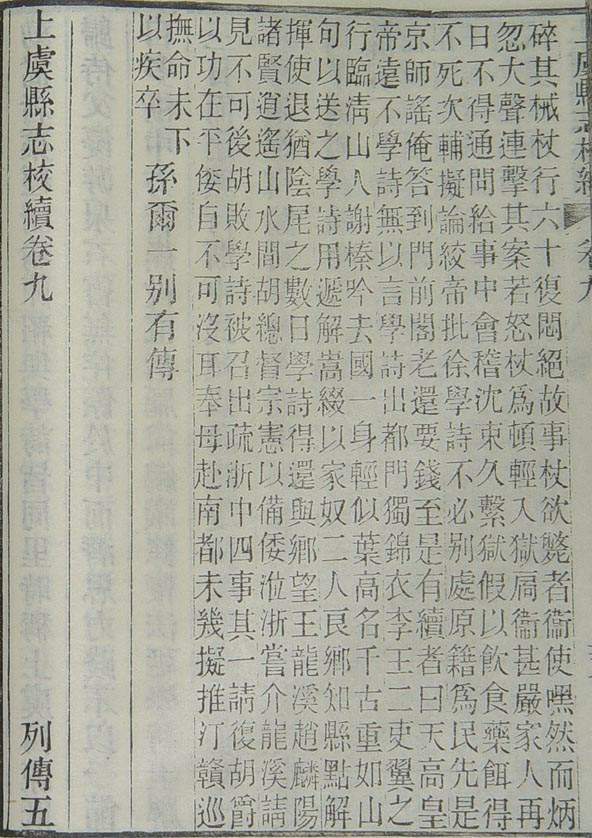 上虞縣志校續 卷九
碎其械杖行六十復悶絕故事杖欲斃者衞使嘿然而炳
忽大聲連擊其案若怒杖爲頓輕入獄扃衞甚嚴家人再
日不得通問給事中會稽沈束久繫獄假以飲食藥餌得
不死次輔擬論絞帝批徐學詩不必別處原籍爲民先是
京師謠俺答到門前閣老還要錢至是有續者曰天高皇
帝遠不學詩無以言學詩出都門獨錦衣李王二吏翼之
行臨淸山人謝榛吟去國一身輕似葉高名千古重如山
句以送之學詩用遞解嵩綴以家奴二人良鄉知縣點解
揮使退猶陰尾之數日學詩得還與鄉望王龍溪趙麟陽
諸賢逍遙山水間胡總督宗憲以備倭涖浙嘗介龍溪請
見不可後胡敗學詩被召出疏浙中四事其一請復胡爵
以功在平倭自不可沒耳奉母赴南都未幾擬推汀贛巡
撫命未下
以疾卒
孫爾一別有傳
上虞縣志校續卷九 列傳五